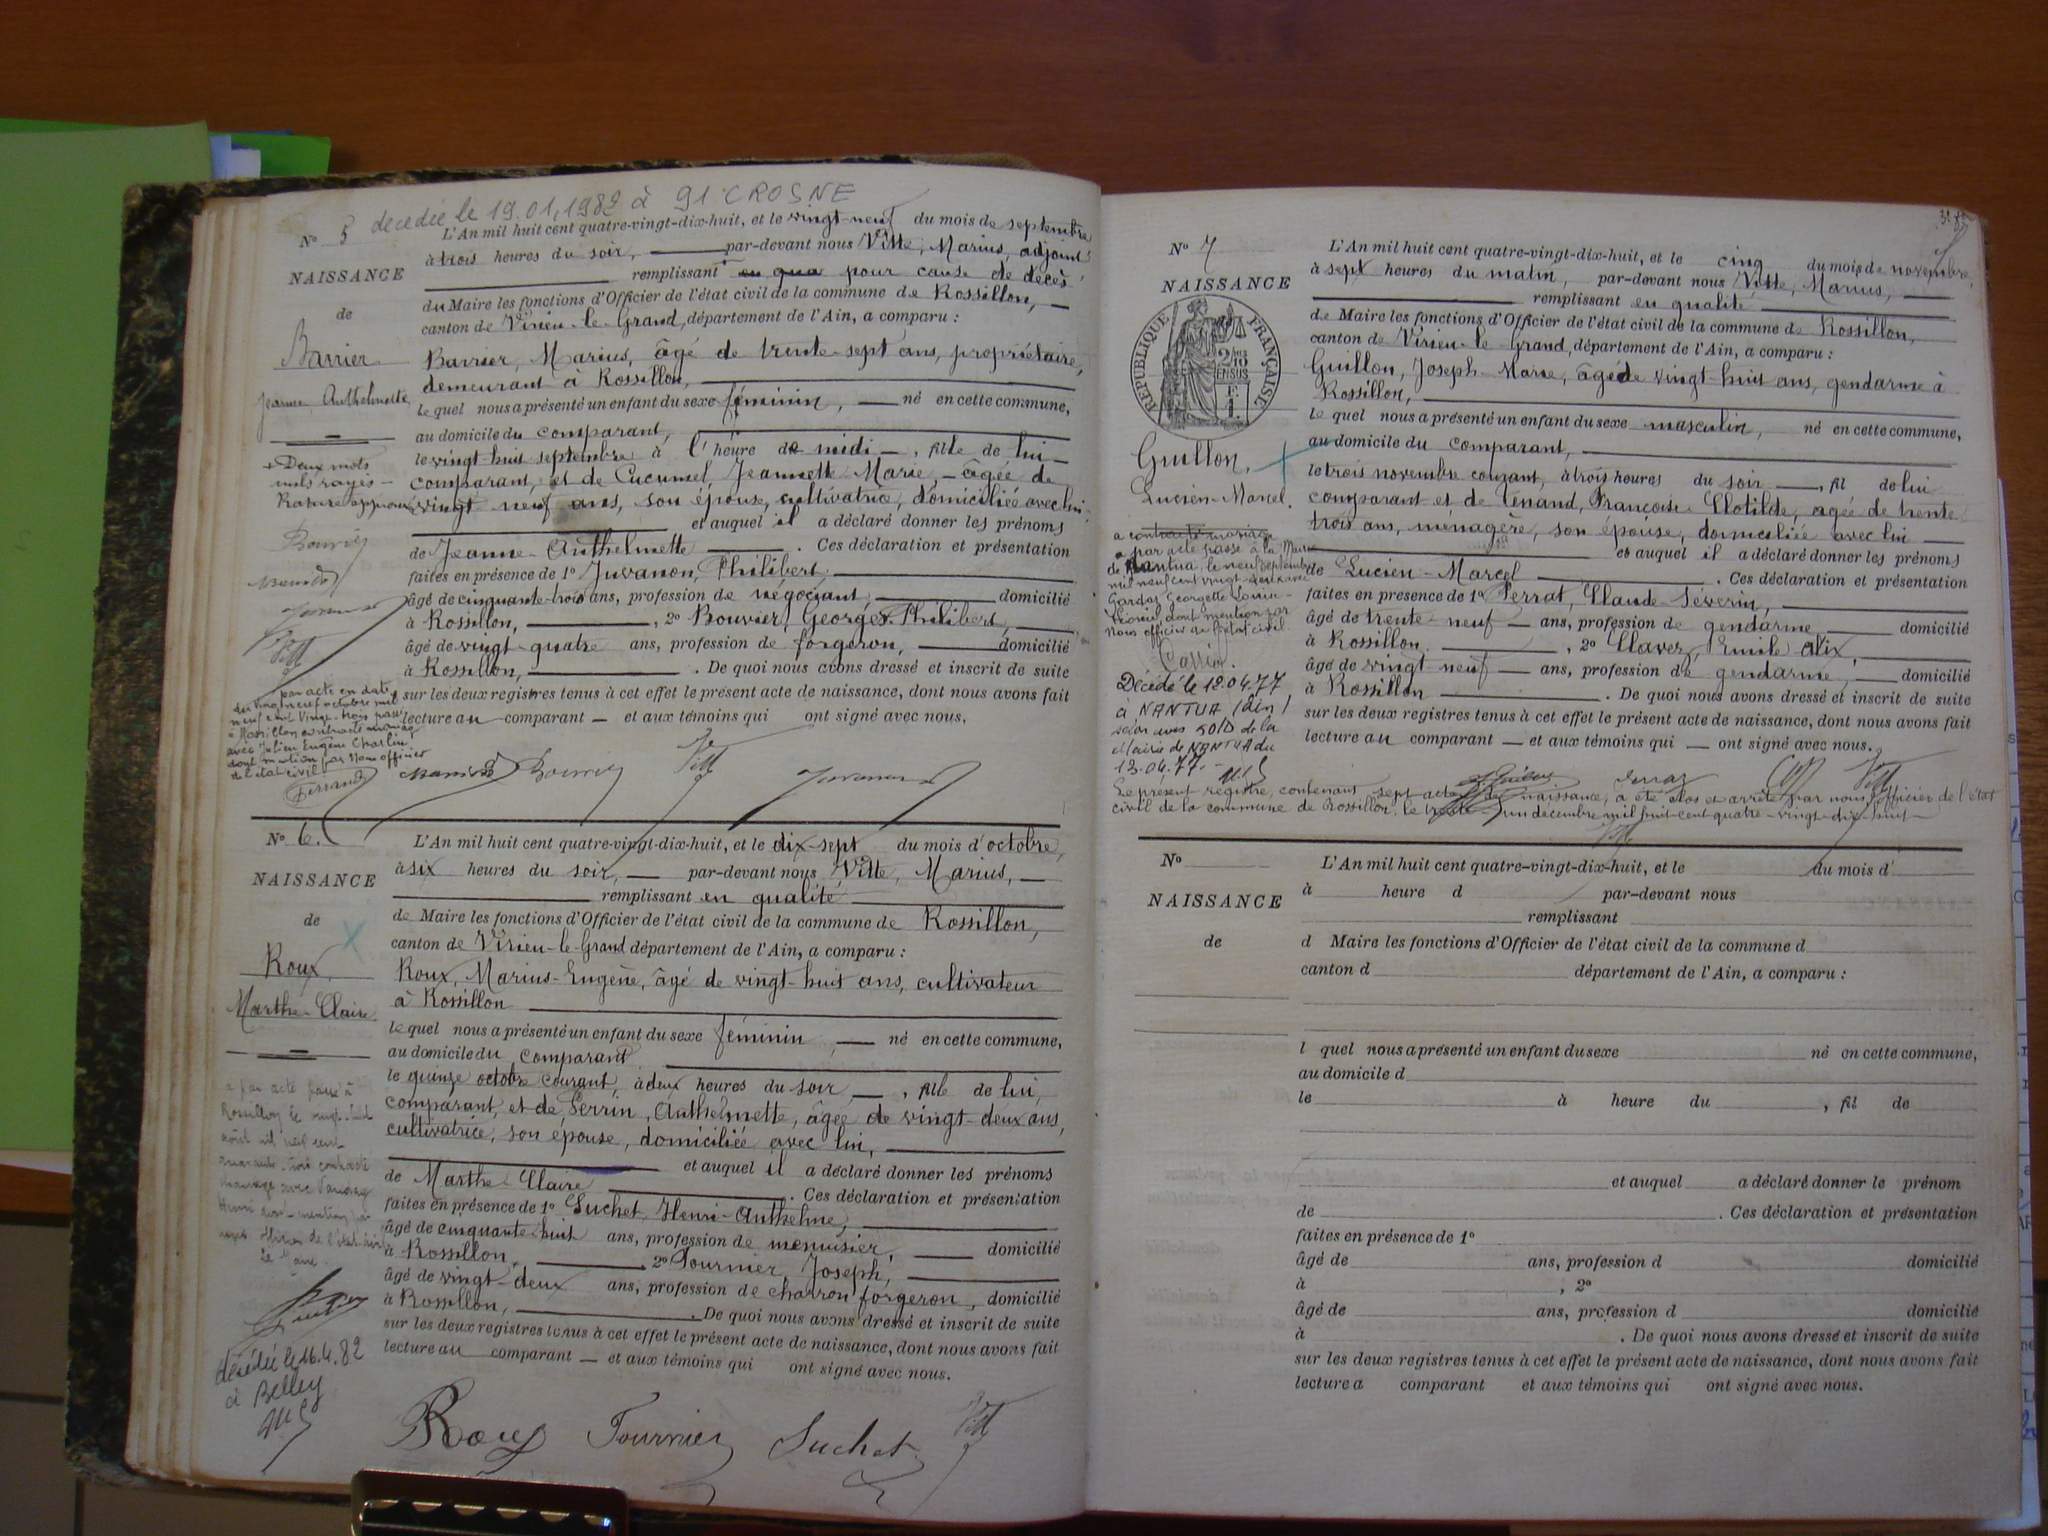 décédée le 19.01.1982 à 91 CROSNE
N° 5
NAISSANCE
de
Barrier
Jeanne Anthelmette
+ Deux mots
nuls rayés
Rature approuvée
L'An mil huit cent quatre-vingt-dix-huit, et le vingt-neuf du mois de septembre
à trois heures du soir, par-devant nous Vitte, Marius, adjoint
remplissant en qua pour cause de décès
du Maire les fonctions d'Officier de l'état civil de la commune de Rossillon,
canton de Virieu-le-Grand, département de l'Ain, a comparu :
Barrier, Marius, âgé de trente-sept ans, propriétaire,
demeurant à Rossillon,
lequel nous a présenté un enfant du sexe féminin, né en cette commune,
au domicile du comparant,
le vingt-huit septembre à l'heure de midi, fille de lui
comparant, et de Cucumel, Jeannette Marie, âgée de
vingt neuf ans, son épouse, cultivatrice, domiciliée avec lui
et auquel il a déclaré donner les prénoms
de Jeanne-Anthelmette. Ces déclaration et présentation
faites en présence de 1° Juvanon, Philibert,
âgé de cinquante-trois ans, profession de négociant, domicilié
à Rossillon, , 2° Bouvier, Georges Philibert,
âgé de vingt-quatre ans, profession de forgeron, domicilié
à Rossillon, . De quoi nous avons dressé et inscrit de suite
sur les deux registres tenus à cet effet le présent acte de naissance, dont nous avons fait
lecture au comparant et aux témoins qui ont signé avec nous.
par acte en date
du vingt neuf octobre mil
neuf cent vingt-trois passé
à Rossillon contracté mariage
avec Julien Eugène Charlin
dont mention par Nous officier
de l'état civil
Ferrand
N° 6.
NAISSANCE
de
Roux
Marthe-Claire
L'An mil huit cent quatre-vingt-dix-huit, et le dix-sept du mois d'octobre,
à six heures du soir, par-devant nous Vitte, Marius,
remplissant en qualité
de Maire les fonctions d'Officier de l'état civil de la commune de Rossillon,
canton de Virieu-le-Grand département de l'Ain, a comparu :
Roux, Marius-Eugène, âgé de vingt-huit ans, cultivateur
à Rossillon
lequel nous a présenté un enfant du sexe féminin né en cette commune,
au domicile du comparant
le quinze octobre courant, à deux heures du soir, fille de lui,
comparant, et de Perrin, Anthelmette, âgée de vingt-deux ans,
cultivatrice, son épouse, domiciliée avec lui,
et auquel il a déclaré donner les prénoms
de Marthe-Claire. Ces déclaration et présentation
faites en présence de 1° Suchet, Henri-Anthelme,
âgé de cinquante-huit ans, profession de menuisier, domicilié
à Rossillon, 2° Fournier, Joseph,
âgé de vingt-deux ans, profession de charron forgeron, domicilié
à Rossillon, . De quoi nous avons dressé et inscrit de suite
sur les deux registres tenus à cet effet le présent acte de naissance, dont nous avons fait
lecture au comparant et aux témoins qui ont signé avec nous.
a par acte passé à
Rossillon le vingt-huit
août mil neuf cent
quarante-trois contracté
mariage avec
Henri dont mention par
nous officier de l'état civil
décédée le 16.4.82
à Belley
Roux Fournier Suchet Vitte
N° 7
NAISSANCE
RÉPUBLIQUE FRANÇAISE
2/10 EN SUS
F. 1.
Guillon,
Lucien-Marcel.
L'An mil huit cent quatre-vingt-dix-huit, et le cinq du mois de novembre,
à sept heures du matin, par-devant nous Vitte, Marius,
remplissant en qualité
de Maire les fonctions d'Officier de l'état civil de la commune de Rossillon,
canton de Virieu-le-Grand, département de l'Ain, a comparu :
Guillon, Joseph-Marie, âgé de vingt-huit ans, gendarme à
Rossillon,
lequel nous a présenté un enfant du sexe masculin, né en cette commune,
au domicile du comparant,
le trois novembre courant, à trois heures du soir, fil de lui
comparant et de Tinand, Françoise-Clotilde, agée de trente
trois ans, ménagère, son épouse, domiciliée avec lui
et auquel il a déclaré donner les prénoms
de Lucien-Marcel. Ces déclaration et présentation
faites en présence de 1° Perrat, Claude-Séverin,
âgé de trente-neuf ans, profession de gendarme domicilié
à Rossillon, 2° Claver, Emile Alix,
âgé de vingt neuf ans, profession de gendarme, domicilié
à Rossillon. De quoi nous avons dressé et inscrit de suite
sur les deux registres tenus à cet effet le présent acte de naissance, dont nous avons fait
lecture au comparant et aux témoins qui ont signé avec nous.
a contracté mariage
par acte passé à la Mairie
de Nantua, le neuf septembre
mil neuf cent vingt-deux avec
Georgette Louise
dont mention par
Nous officier de l'état civil.
Décédé le 12.04.77
à NANTUA (Ain)
selon avis 50/D de la
Mairie de NANTUA du
13.04.77.
Le présent registre, contenant sept actes de naissance, a été clos et arrêté par nous, officier de l'état
civil de la commune de Rossillon le trente-un décembre mil huit-cent-quatre-vingt-dix-huit
N°
NAISSANCE
de
L'An mil huit cent quatre-vingt-dix-huit, et le du mois d
à heure d par-devant nous
remplissant
d Maire les fonctions d'Officier de l'état civil de la commune d
canton d département de l'Ain, a comparu :
l quel nous a présenté un enfant du sexe né en cette commune,
au domicile d
le à heure du , fil de
et auquel a déclaré donner le prénom
de . Ces déclaration et présentation
faites en présence de 1°
âgé de ans, profession d domicilié
à , 2°
âgé de ans, profession d domicilié
à . De quoi nous avons dressé et inscrit de suite
sur les deux registres tenus à cet effet le présent acte de naissance, dont nous avons fait
lecture a comparant et aux témoins qui ont signé avec nous.